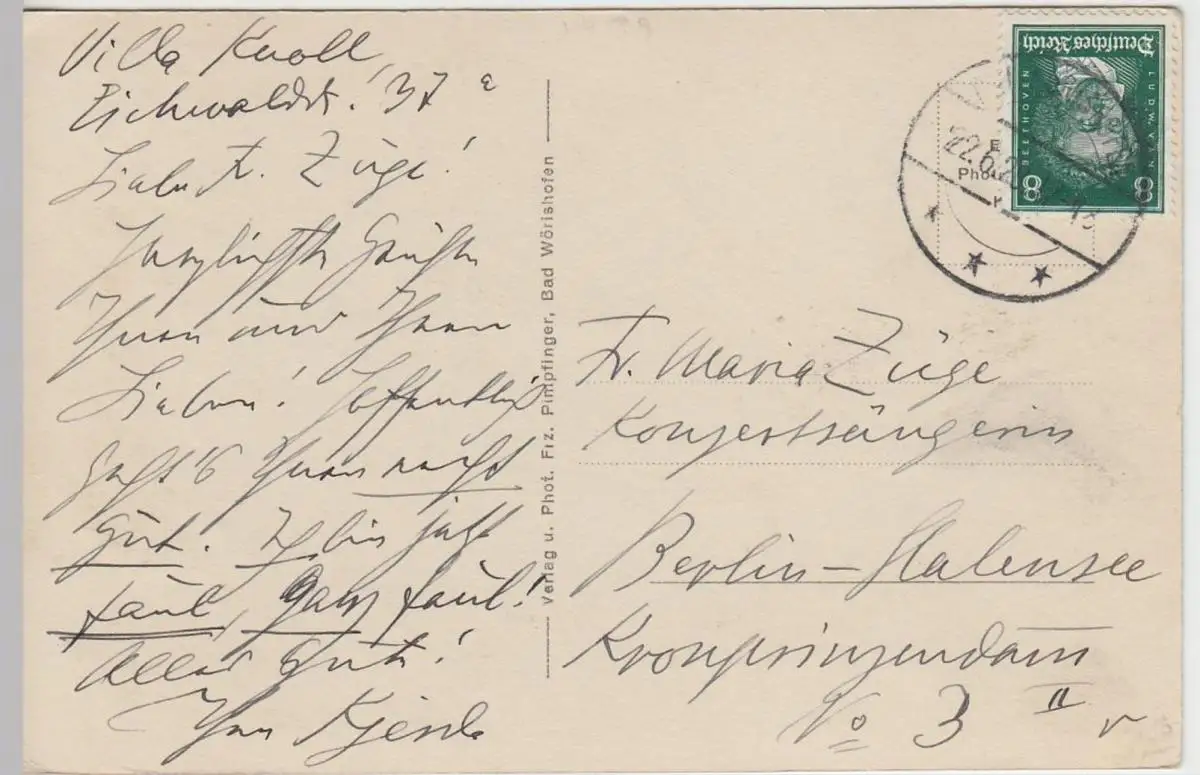 Villa Knoll,
Eichwaldstr. 37a
Liebe Fr. Züge!
Herzlichste Grüße
Ihnen und Ihren
Lieben! Hoffentlich
geht's Ihnen recht
gut. Ich bin jetzt
faul, ganz faul!
Alles Gute!
Ihr
Verlag u. Phot. Frz. Pimpfinger, Bad Wörishofen
Deutsches Reich
LUDW. VAN
BEETHOVEN
8 8
22.6.2
Fr. Maria Züge
Konzertsängerin
Berlin-Halensee
Kronprinzendamm
No 3 II r